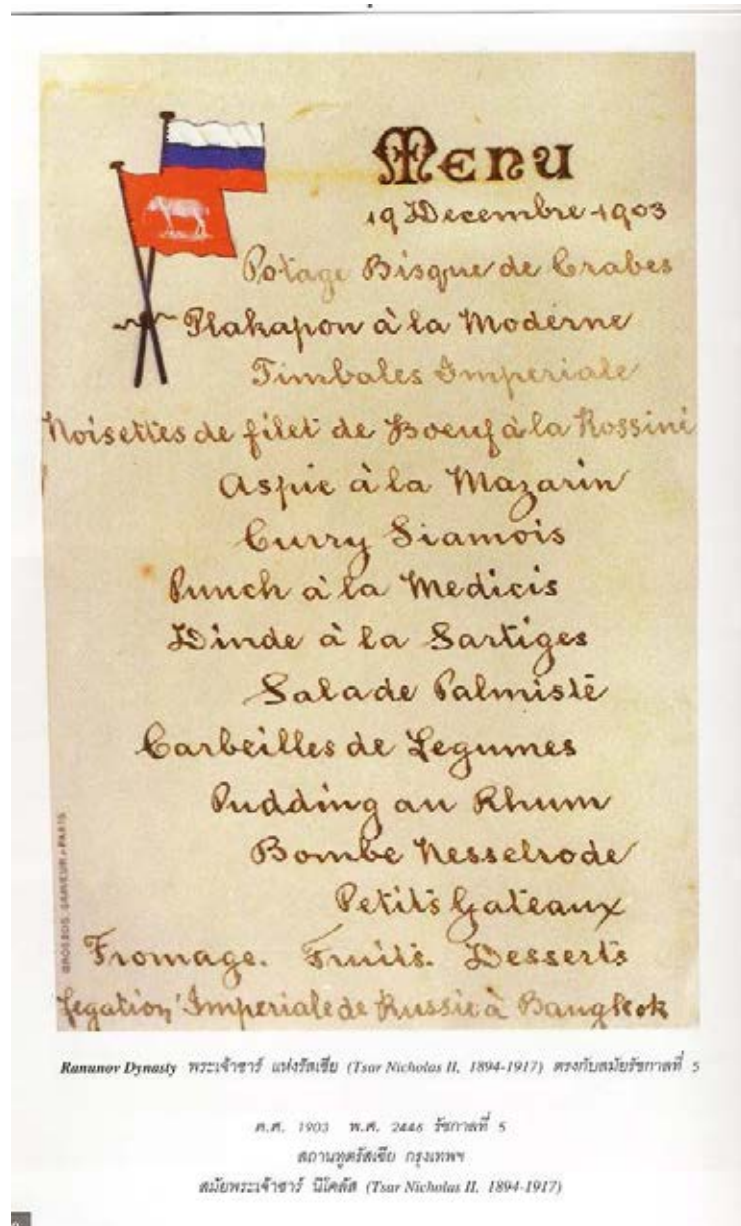 Menu
19 Decembre 1903
Potage Bisque de Crabes
Plakapon à la Moderne
Timbales Imperiale
Noisettes de filet de Boeuf à la Rossini
Aspic à la Mazarin
Curry Siamois
Punch à la Medicis
Dinde à la Sartiges
Salade Palmiste
Corbeilles de Legumes
Pudding au Rhum
Bombe Nesselrode
Petits Gateaux
Fromage. Fruits. Desserts
Legation Imperiale de Russie à Bangkok
PARIS
Ranunov Dynasty พระเจ้าซาร์ แห่งรัสเซีย (Tsar Nicholas II, 1894-1917) ตรงกับสมัยรัชกาลที่ 5
ค.ศ. 1903 พ.ศ. 2446 รัชกาลที่ 5
สถานทูตรัสเซีย กรุงเทพฯ
สมัยพระเจ้าซาร์ นิโคลัส (Tsar Nicholas II, 1894-1917)